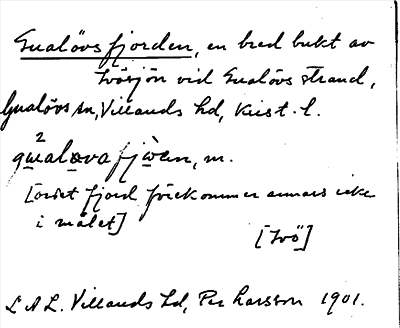 Gualövsfjorden, en bred bukt av
Ivösjön vid Gualövs strand,
Gualövs sn, Villands hd, Krist. l.
2
gualøvafjøen, m.
[ordet fjord förekommer annars icke
i målet]
[Ivö]
L A L. Villands hd, Per Larsson 1901.